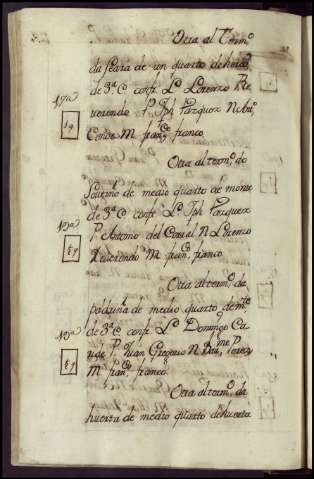 Otra al Term.º
da Seara de un quarto de
de 3.ª C confr. L.º Lorenzo Re
verendo P. Jph Vazquez N.
Conde M. fran.co franco
Otra al term.º do
de medio quarto de monte
de 3.ª C confr. L.º Jph Vazquez
P. Antonio del Corral N. Lorenzo
Reverendo M. fran.co franco
Otra al term.º da
de medio quarto de m.te
de 3.ª C confr. L.º Domingo Ca
P. Juan Gregorio N. Perez
M. fran.co franco
Otra al term.º da
huerta de medio quarto de huerta